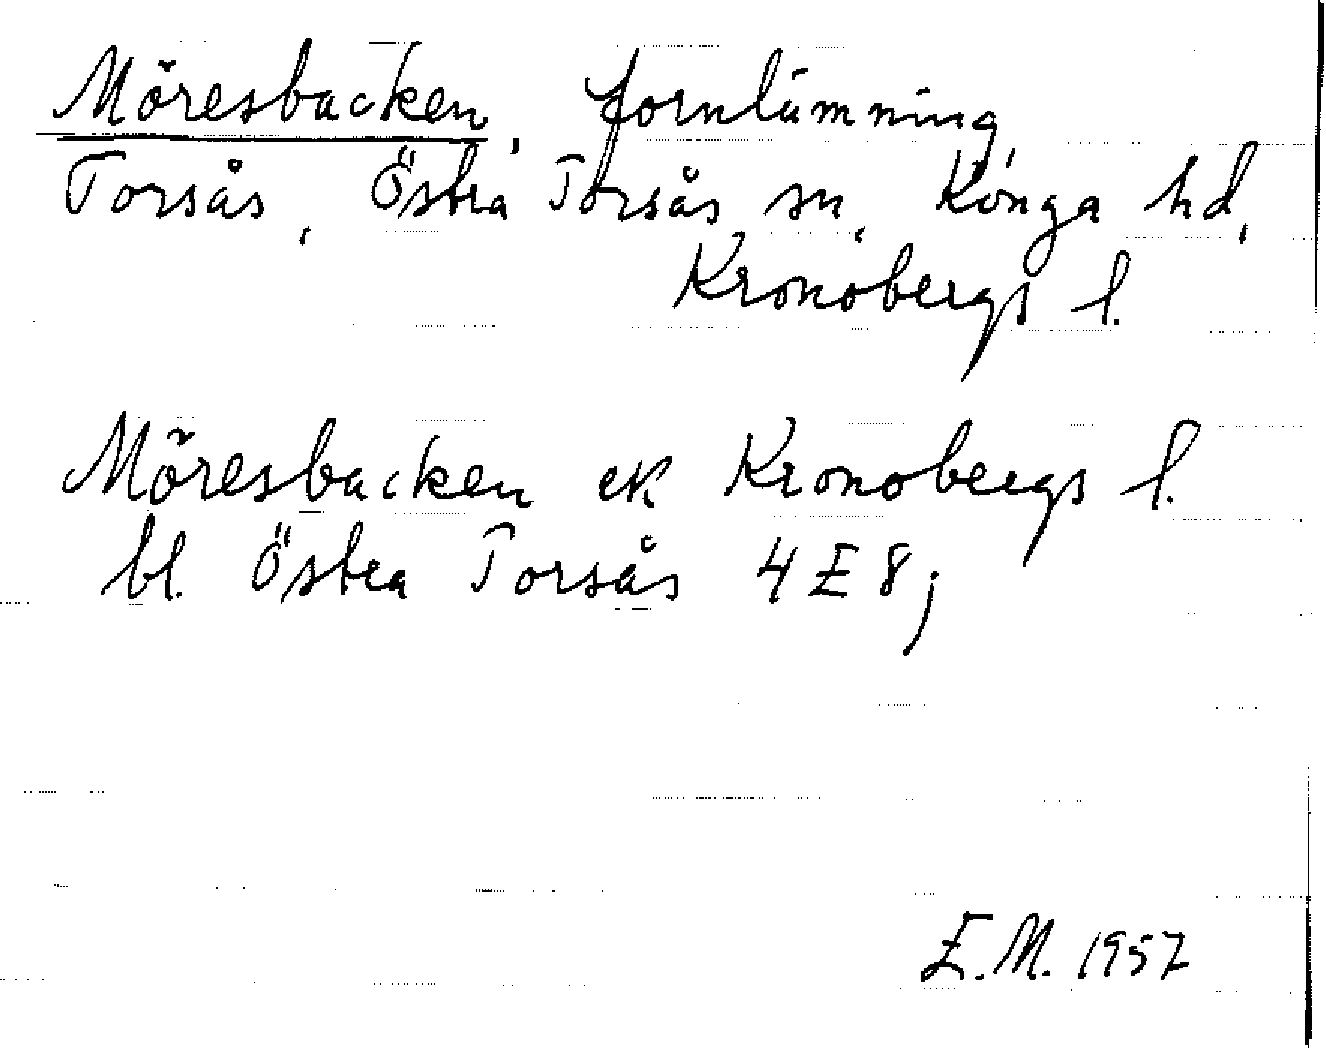 Möresbacken, fornlämning,
Torsås, Östra Torsås sn, Konga hd,
Kronobergs l.
Möresbacken ek Kronobergs l.
bl. Östra Torsås 4E8;
E.M. 1957